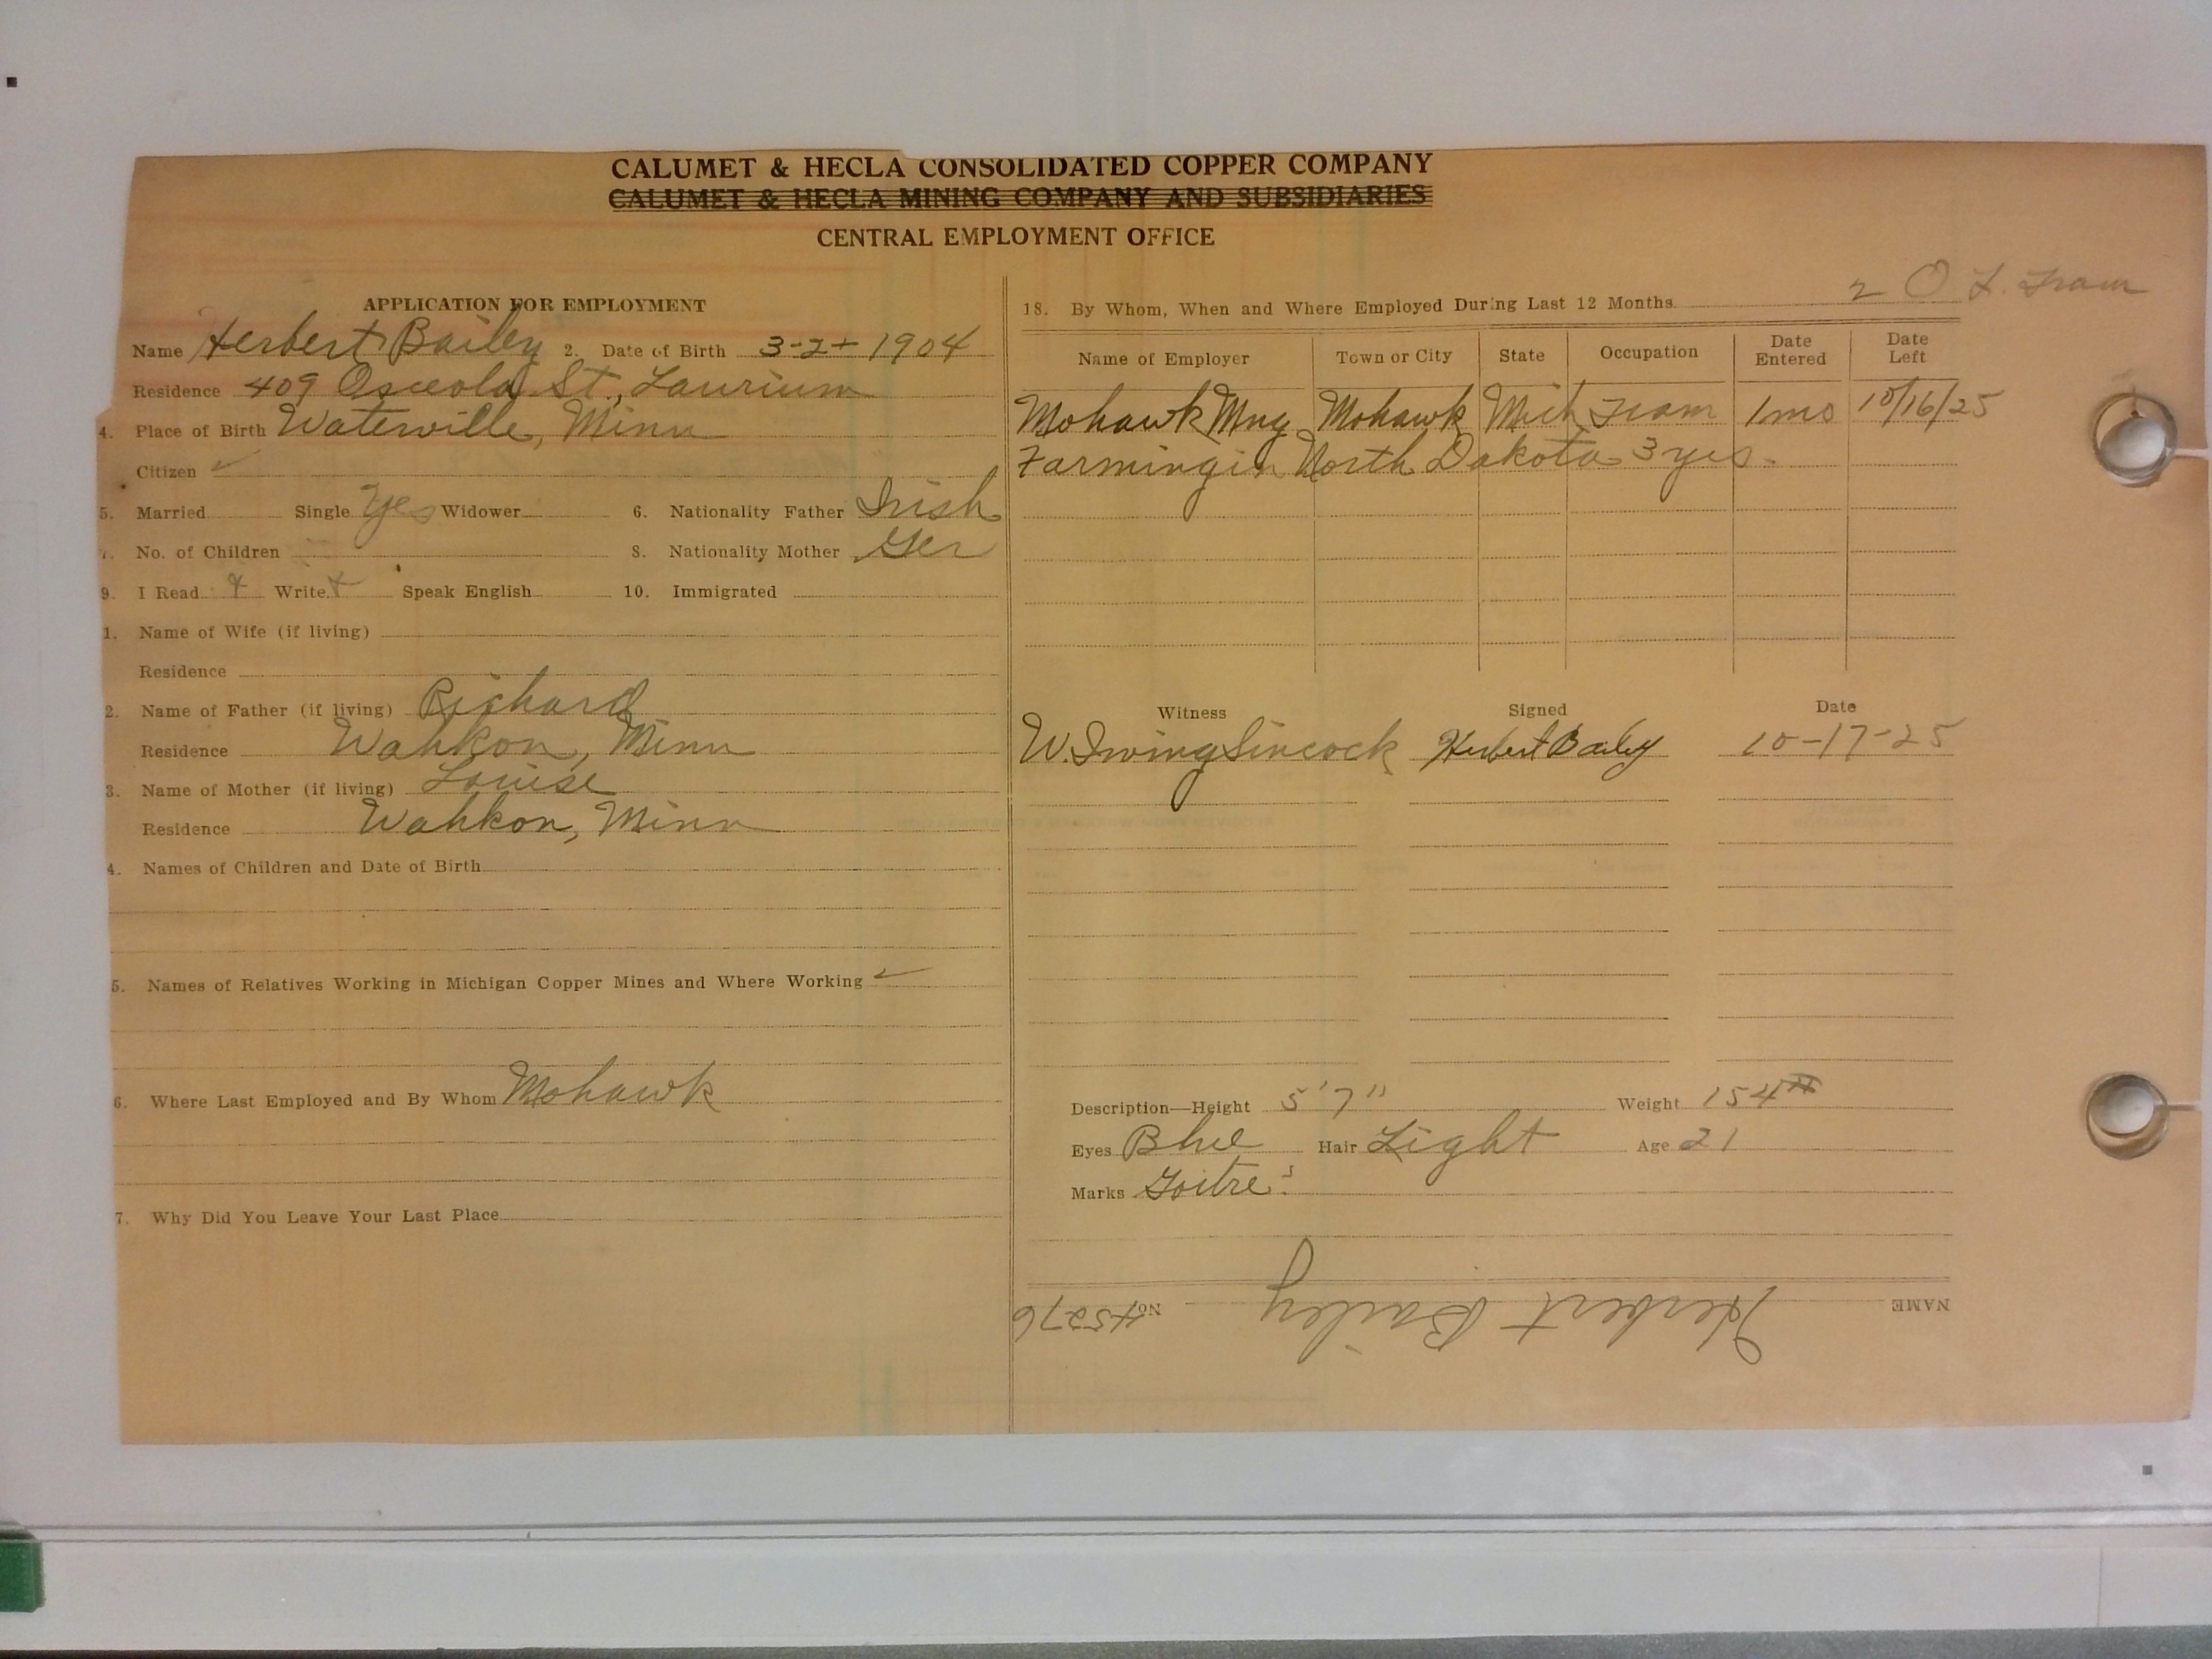 CALUMET & HECLA CONSOLIDATED COPPER COMPANY
CALUMET & HECLA MINING COMPANY AND SUBSIDIARIES
CENTRAL EMPLOYMENT OFFICE
APPLICATION FOR EMPLOYMENT
Name Herbert Bailey 2. Date of Birth 3-24 1904
Residence 409 Osceola St., Laurium
4. Place of Birth Waterville, Minn
Citizen ✓
5. Married Single Yes Widower 6. Nationality Father Irish
7. No. of Children 8. Nationality Mother Ger
9. I Read Write Speak English 10. Immigrated
1. Name of Wife (if living)
Residence
2. Name of Father (if living) Richard
Residence Wahkon, Minn
3. Name of Mother (if living) Louise
Residence Wahkon, Minn
4. Names of Children and Date of Birth
5. Names of Relatives Working in Michigan Copper Mines and Where Working ✓
6. Where Last Employed and By Whom Mohawk
7. Why Did You Leave Your Last Place
2 O L. Tram
18. By Whom, When and Where Employed During Last 12 Months
Name of Employer Town or City State Occupation Date Entered Date Left
Mohawk Mng Mohawk Mich Tram 1 mo 10/16/25
Farming in North Dakota 3 yrs.
Witness Signed Date
W. Irving Sincock Herbert Bailey 10-17-25
Description—Height 5'7" Weight 154#
Eyes Blue Hair Light Age 21
Marks Goitre
NAME Herbert Bailey No. 45276